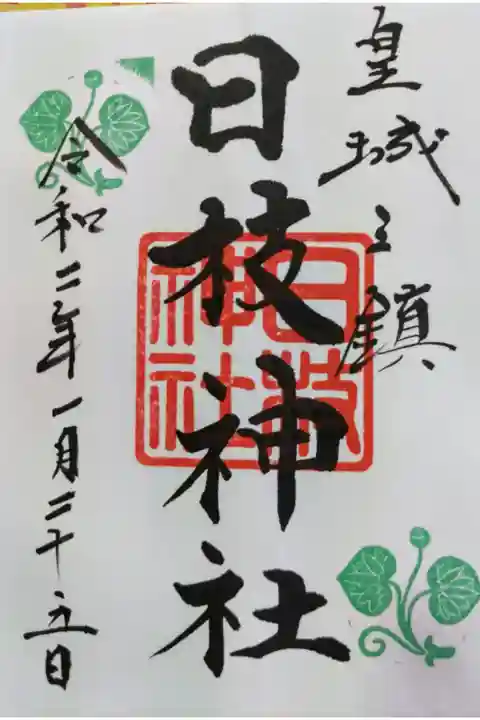 皇城之鎮
日枝神社
日枝神社
令和二年一月二十五日